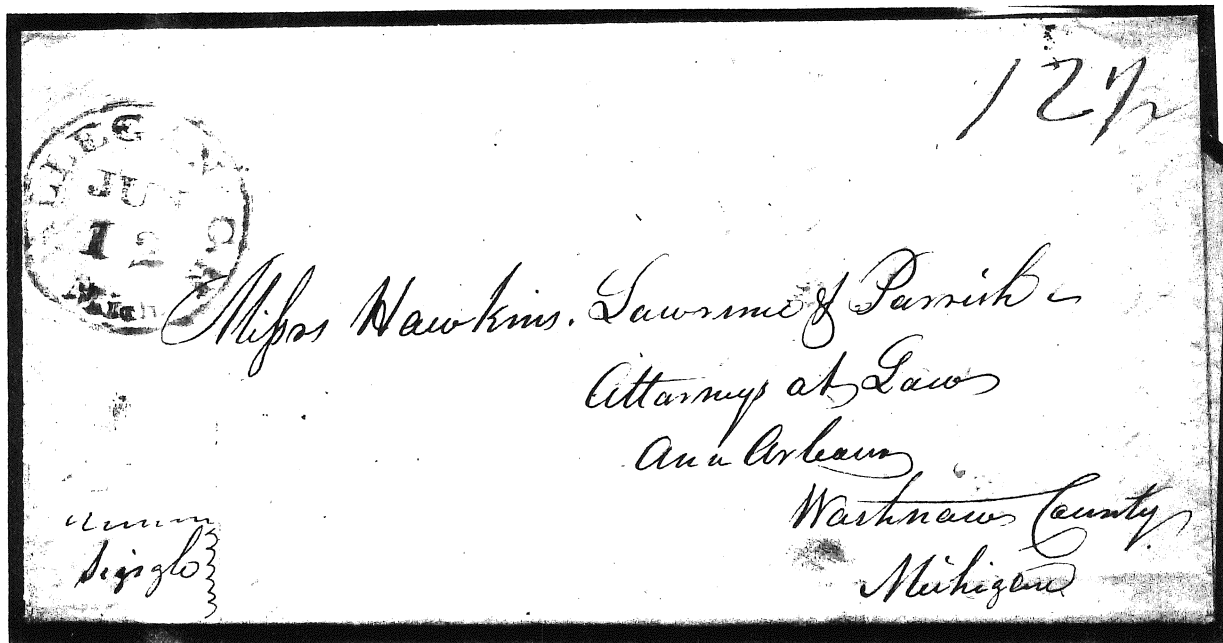 12 1/2
ALLEGAN C.H.
JUN
12
Mich
Messrs Hawkins. Lawrence & Parrish
Attorneys at Law
Ann Arbaur
Washnaw County
Michigan